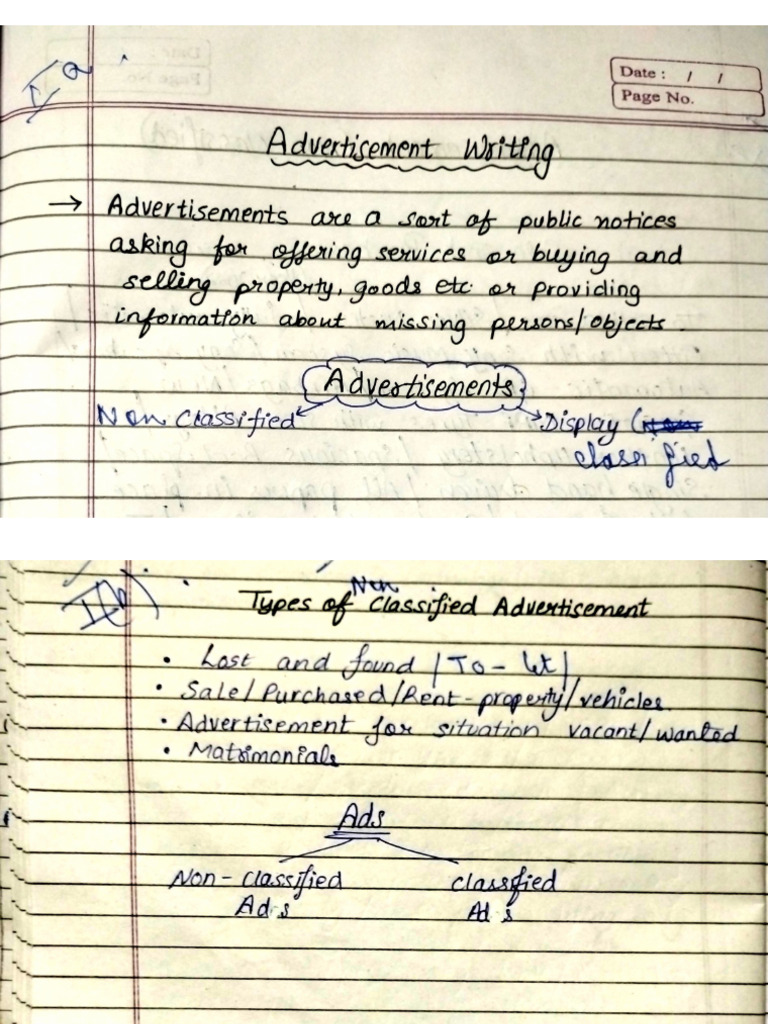 I a
Date : / /
Page No.
Advertisement Writing
→ Advertisements are a sort of public notices
asking for offering services or buying and
selling property, goods etc or providing
information about missing persons/objects.
Advertisements
Non Classified
Display (
classified
I(b)
Types of Non Classified Advertisement
• Lost and found / To-let /
• Sale/Purchased/Rent-property/vehicles.
• Advertisement for situation vacant/wanted
• Matrimonials
Ads
Non-classified classified
Ads Ads